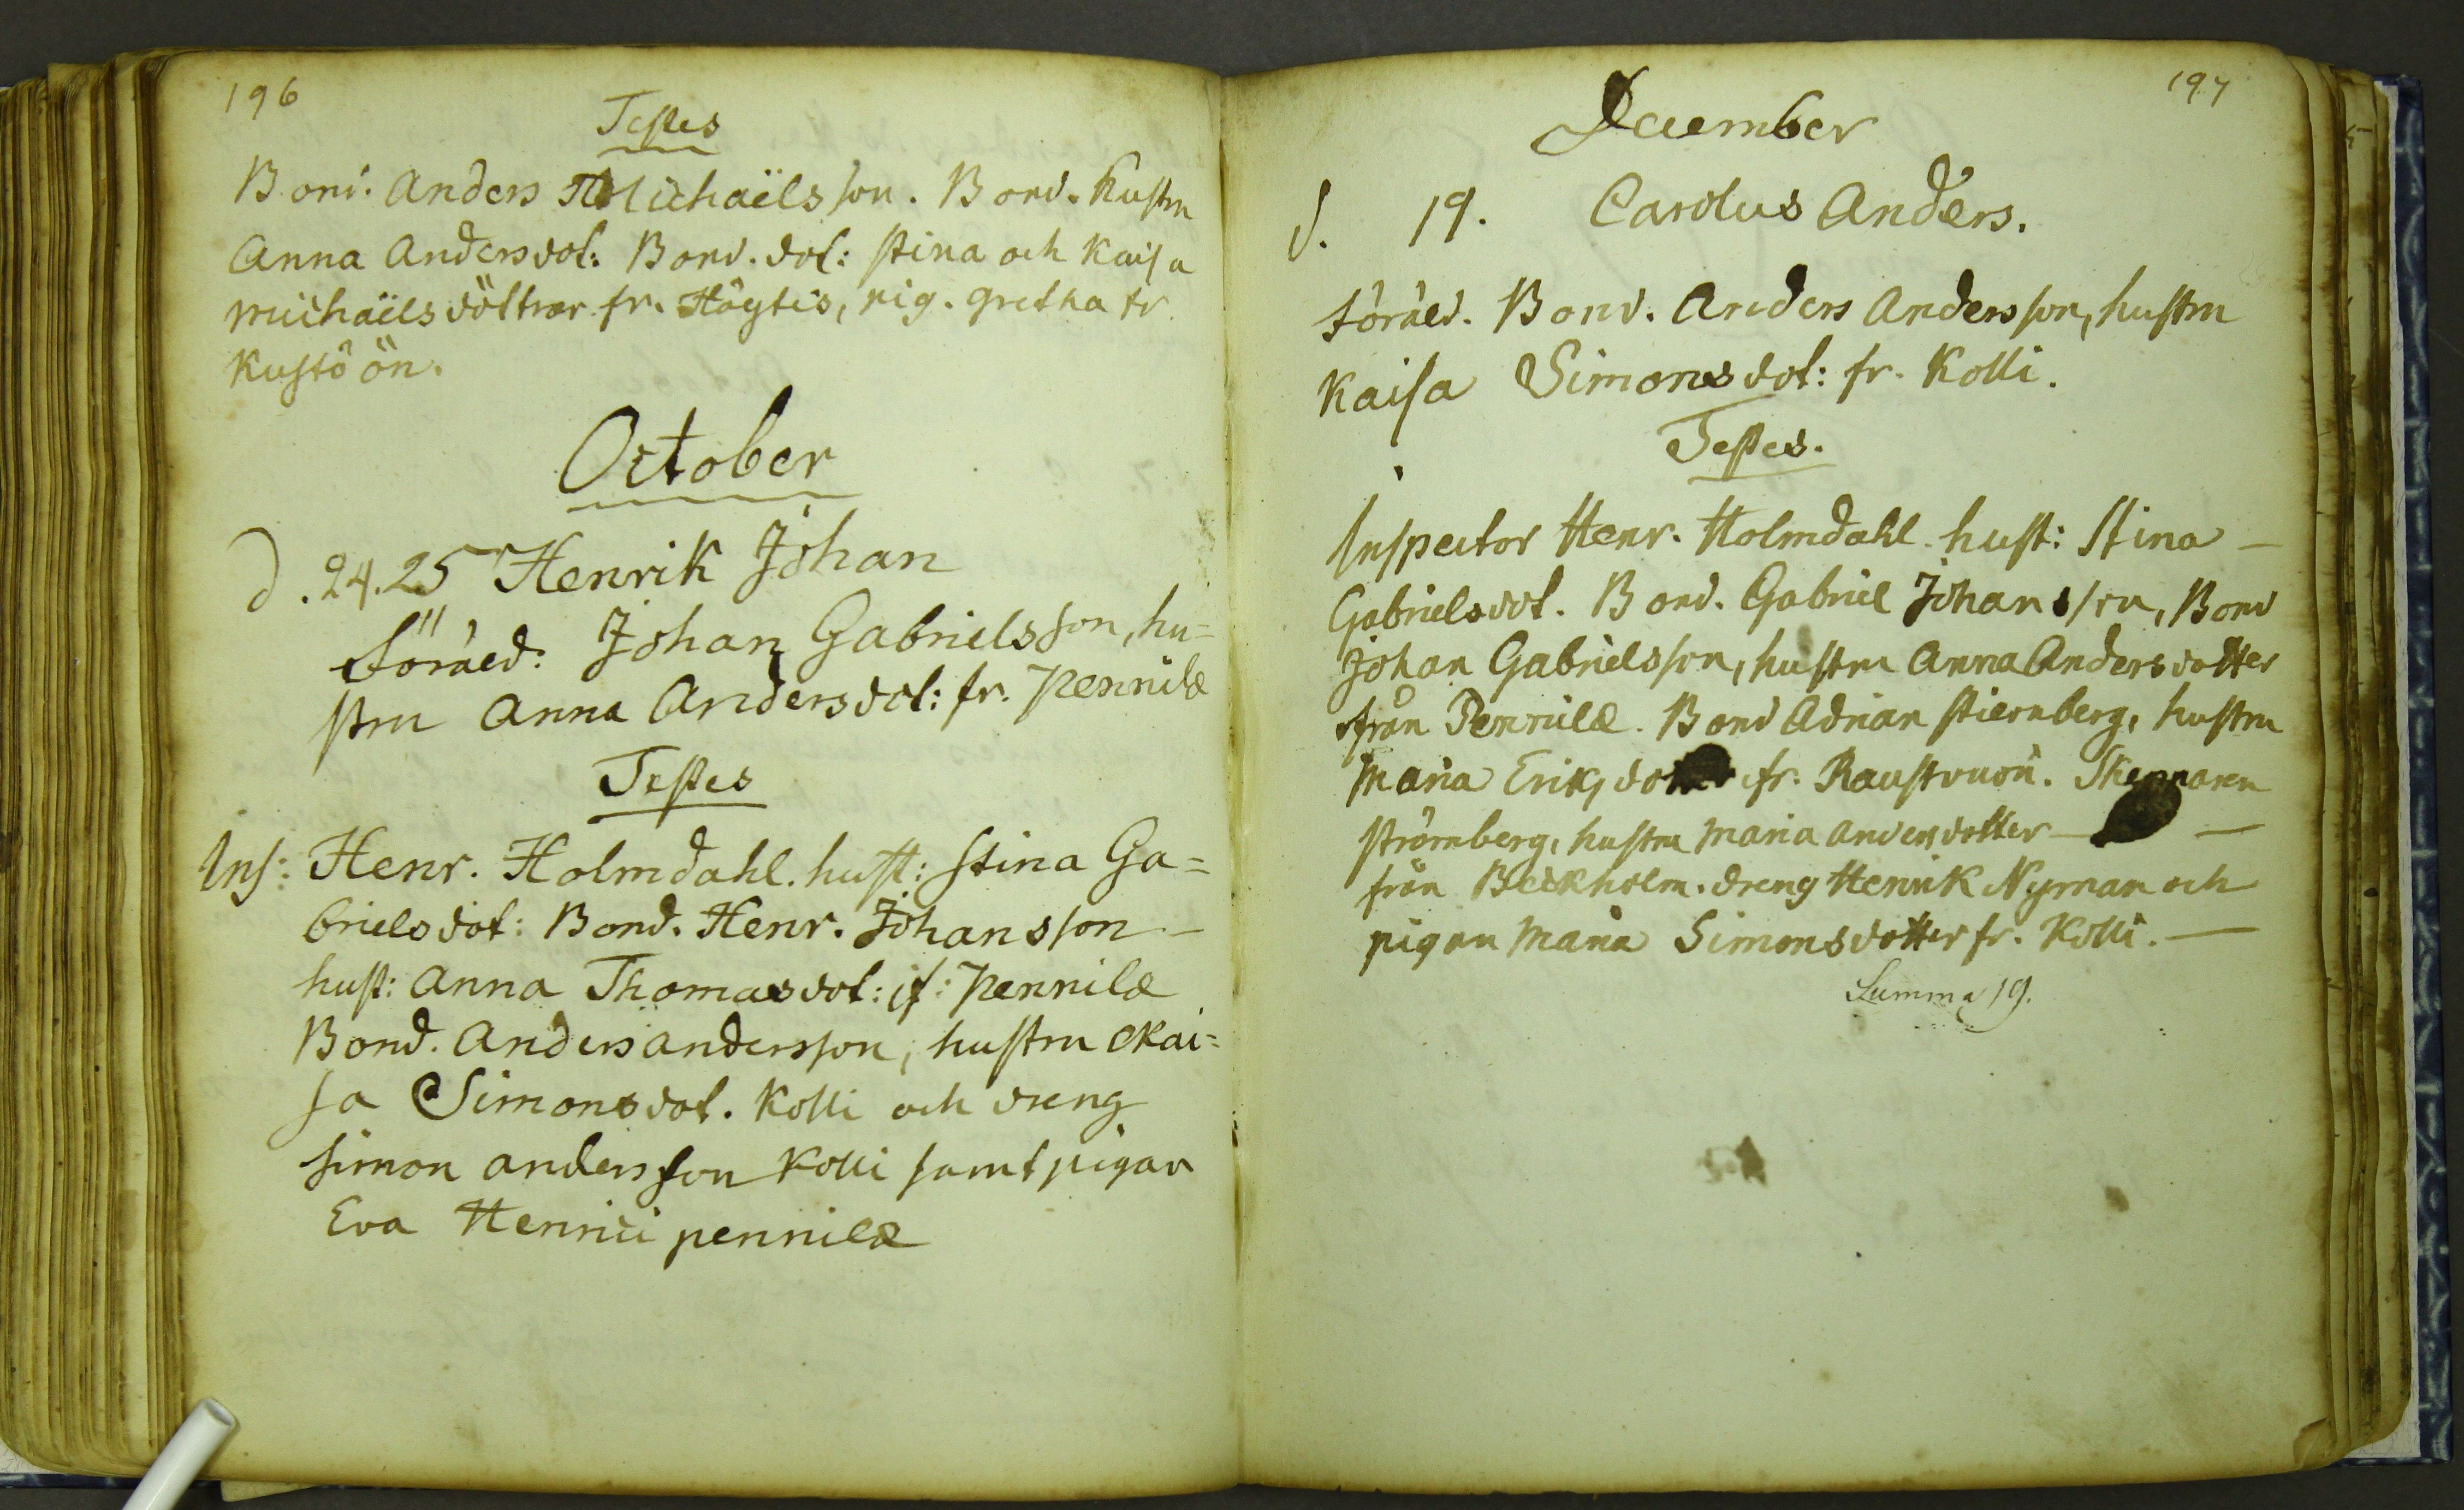 196
Testes
Bond. Anders Michaëlsson. Bond. hustru
Anna Andersdot: Bond. dot: Stina och Kaisa
Michaëlsdöttrar fr. Högtis, pig. Gretha fr.
Kustö ön.
October
d. 24. 25 Henrik Johan
Föräld: Johan Gabrielsson, hu=
stru Anna Andersdot: fr. Pennilä
Testes
Ins: Henr. Holmdahl. hust: Stina Ga=
brielsdot: Bond. Henr. Johansson –
hust: Anna Thomasdot: if: Pennilä
Bond. Anders Andersson, hustru Kai=
sa Simonsdot. Kolli och dreng
Simon Andersson Kolli samt pigan
Eva Henrici pennilä
197
December
d. 19. Carolus Anders.
Föräld. Bond. Anders Andersson, hustru
Kaisa Simonsdot: fr. Kolli.
Testes.
Inspector Henr. Holmdahl. hust: Stina –
Gabrielsdot. Bond. Gabriel Johansson, Bond
Johan Gabrielsson, hustru Anna Andersdotter
från Pennilä. Bond Adrian Stiernberg, hustru
Maria Eriksdotter fr. Raustvuori. Skepparen
Strömberg, hustru Maria Andersdotter – –
från Beckholm. dreng Henrik Nyman och
pigan Maria Simonsdotter fr. Kolli. –
Summa 19.